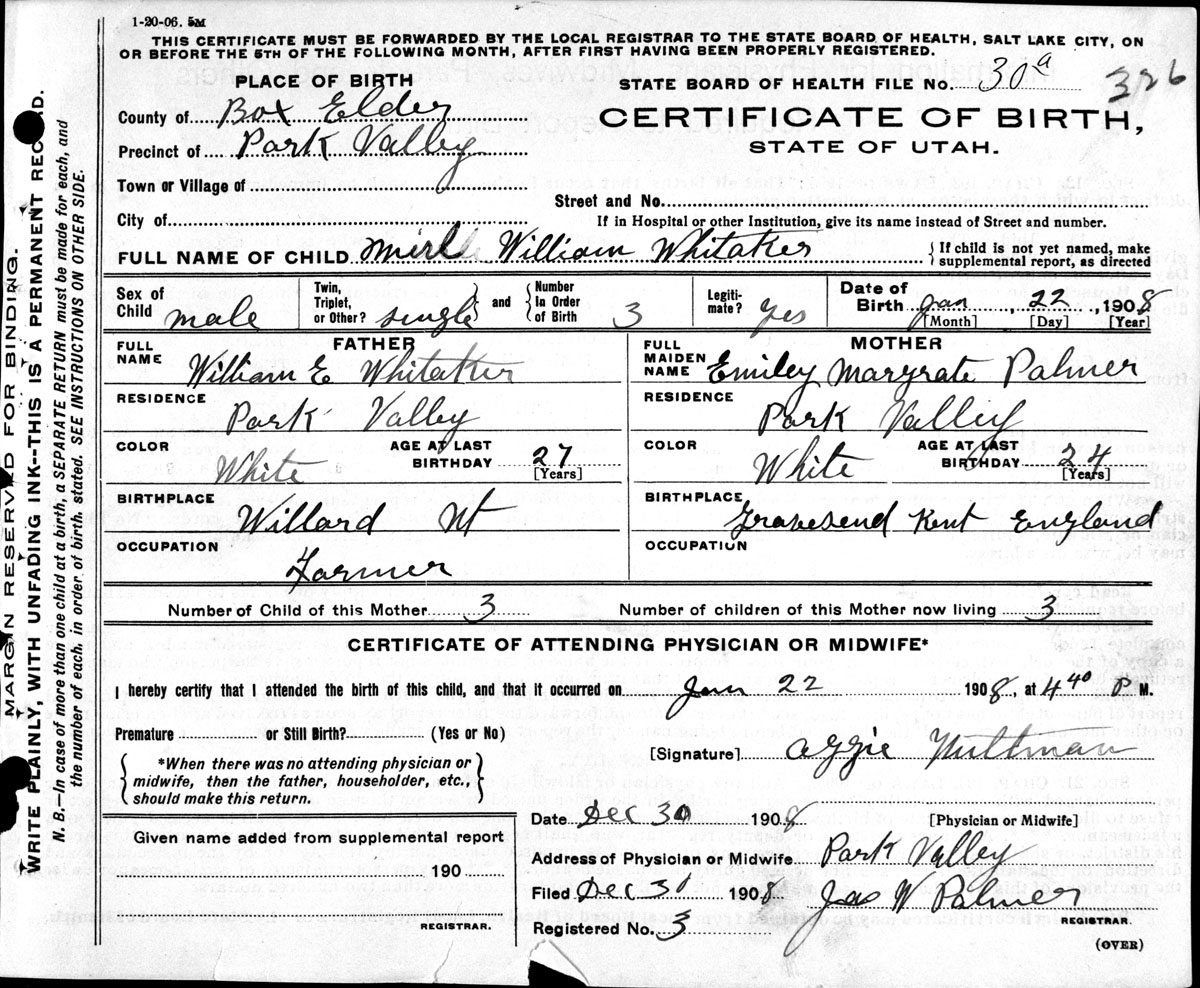 1-20-06. 5M
THIS CERTIFICATE MUST BE FORWARDED BY THE LOCAL REGISTRAR TO THE STATE BOARD OF HEALTH, SALT LAKE CITY, ON
OR BEFORE THE 5TH OF THE FOLLOWING MONTH, AFTER FIRST HAVING BEEN PROPERLY REGISTERED.
PLACE OF BIRTH
STATE BOARD OF HEALTH FILE NO. 30a 326
County of Box Elder
CERTIFICATE OF BIRTH,
Precinct of Park Valley
STATE OF UTAH.
Town or Village of
Street and No.
City of
If in Hospital or other Institution, give its name instead of Street and number.
FULL NAME OF CHILD Merl William Whitaker { If child is not yet named, make supplemental report, as directed
Sex of Child male Twin, Triplet, or Other? single and Number In Order of Birth 3 Legitimate? Yes Date of Birth Jan, 22, 1908
[Month] [Day] [Year]
FATHER
FULL NAME William E Whitaker
RESIDENCE
Park Valley
COLOR White AGE AT LAST BIRTHDAY 27 [Years]
BIRTHPLACE
Willard Ut
OCCUPATION
Farmer
MOTHER
FULL MAIDEN NAME Emiley Margrate Palmer
RESIDENCE
Park Valley
COLOR White AGE AT LAST BIRTHDAY 24 [Years]
BIRTHPLACE
Gravesend Kent England
OCCUPATION
Number of Child of this Mother 3 Number of children of this Mother now living 3
CERTIFICATE OF ATTENDING PHYSICIAN OR MIDWIFE*
I hereby certify that I attended the birth of this child, and that it occurred on Jan 22 1908, at 4 40 P M.
Premature or Still Birth? (Yes or No)
[Signature] Aggie
*When there was no attending physician or
midwife, then the father, householder, etc.,
should make this return.
Date Dec 30 1908 [Physician or Midwife]
Given name added from supplemental report
Address of Physician or Midwife Park Valley
190
Filed Dec 30 1908 Jas W Palmer
REGISTRAR.
REGISTRAR.
Registered No. 3
(OVER)
MARGIN RESERVED FOR BINDING.
WRITE PLAINLY, WITH UNFADING INK--THIS IS A PERMANENT RECORD.
N. B.—In case of more than one child at a birth, a SEPARATE RETURN must be made for each, and
the number of each, in order of birth, stated. SEE INSTRUCTIONS ON OTHER SIDE.